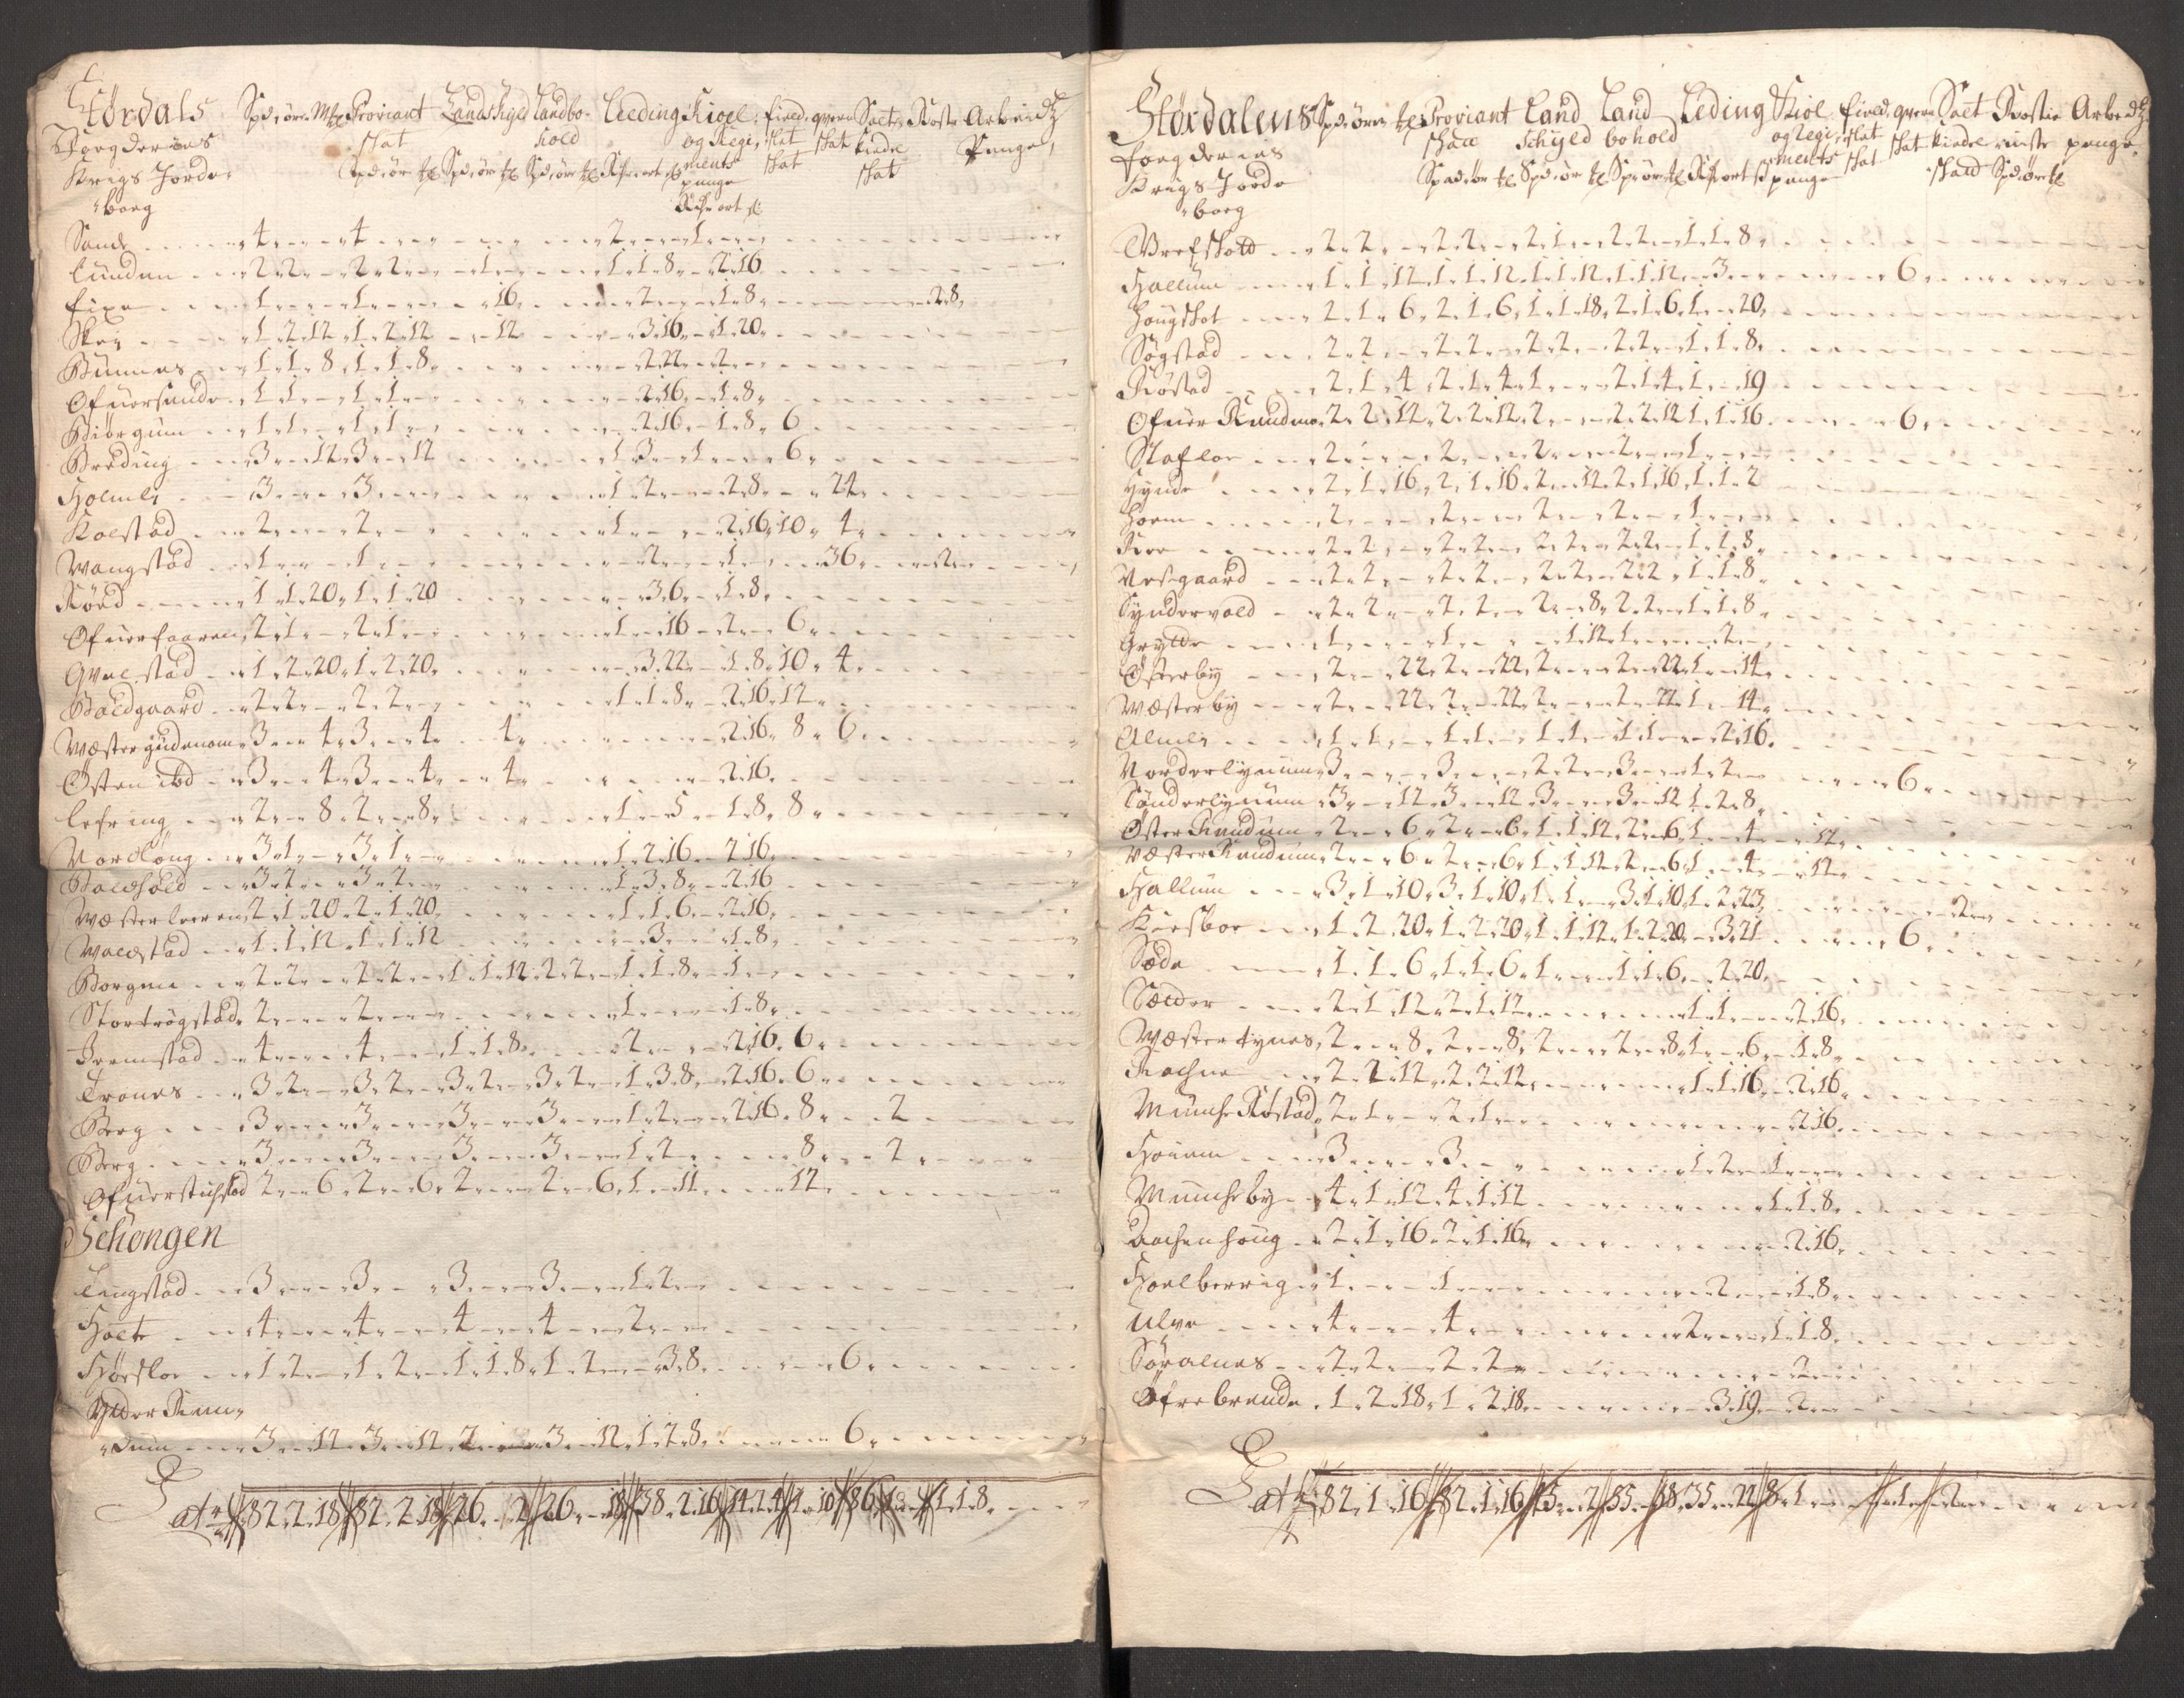 Størdals Spd: ører Mkl Proviant Landschyld Landbo- Leeding Kioel, field, quern Salt, Kost Arbeidtz
Foegderies skat hold og Regi, skat skat kinde Penge,
Krigs Jorde- Spd ør kl Spd ør kl Spd ør kl ments skat skat
boeg penge
Sande 4 4 2 1
Lunden 2 2 2 2 1 1 1 8 2 16
fixe 1 1 16 2 1 8 2 8
Skey 1 2 12 1 2 12 12 3 16 1 20
Bunnes 1 1 8 1 1 8 2 22 2
Ofuersunde 1 1 1 1 2 16 1 8
Biørgum 1 1 1 1 2 16 1 8 6
Breding 3 12 3 12 1 3 1 6
Holmli 3 3 1 2 2 8 24
Kolstad 2 2 1 2 16 10 4
Wangstad 1 1 2 1 36 2
Røed 1 1 20 1 1 20 3 6 1 8
Ofuerfaaren 2 1 2 1 1 16 2 6
Quelstad 1 2 20 1 2 20 3 22 1 8 10 4
Baldgaard 2 2 2 2 1 1 8 2 16 12
Wæstergudenom 3 4 3 4 4 2 16 8 6
Østen ibd 3 4 3 4 4 2 16
Lefring 2 8 2 8 1 5 1 8 8
Nordlong 3 1 3 1 1 2 16 2 16
3 2 3 2 1 3 8 2 16
Wæsterleeren 2 1 20 2 1 20 1 1 6 2 16
Waldstad 1 1 12 1 1 12 3 1 8
Borgen 2 2 2 2 1 1 12 2 2 1 1 8 1
Stortrøgstad 2 2 1 1 8
Jremstad 4 4 1 1 8 2 2 16 6
Trones 3 2 3 2 3 2 3 2 1 3 8 2 16 6
Berg 3 3 3 3 1 2 2 16 8 2
Berg 3 3 3 3 1 2 8 2
Ofuerstuhstad 2 6 2 6 2 2 6 1 11 12
Schongen
Lingstad 3 3 3 3 1 2
Holte 4 4 4 4 2
Hørsloe 1 2 1 2 1 1 8 1 2 3 8 6
Ytter Rinn,
dum 3 12 3 12 2 3 12 1 2 8 6
Lat 82 2 18 82 2 18 26 2 26 18 38 2 16 14 2 4 1 10 86 1 1 8
Størdalens Spd: ører kl Proviant Land Land Leding Kiol field, quern Salt Kostis Arbeidtz
foegderies skatt schyld bohold og Regi, skat skat kindel penge,
Krigs Jorde Spd ør kl Spd ør kl Spd ør kl ments skat skatt Spd ør kl
boeg penge
2 2 2 2 2 1 2 2 1 1 8
Hallum 1 1 12 1 1 12 1 1 12 1 1 12 3 6
Hougskot 2 1 6 2 1 6 1 1 18 2 1 6 1 20
Søgstad 2 2 2 2 2 2 2 2 1 1 8
Røstad 2 1 4 2 1 4 1 2 1 4 1 19
Ofuer Kundmo 2 2 12 2 2 12 2 2 2 12 1 1 16 6
Stafloe 2 2 2 2 1
Hynde 2 1 16 2 1 16 2 12 2 1 16 1 1 2
Hoem 2 2 2 2 1
Kroe 2 2 2 2 2 2 2 2 1 2 8
Nesgaard 2 2 2 2 2 2 2 2 1 1 8
Syndervold 2 2 2 2 2 8 2 2 1 1 8
Grytte 1 1 1 12 1 2
Østerby 2 22 2 22 2 2 22 1 14
Wæsterby 2 22 2 22 2 2 22 1 14
Almli 1 1 1 1 1 1 1 1 2 16
Norderlynum 3 3 2 2 3 1 2 6
Sønderlynum 3 12 3 12 3 3 12 1 2 8
Øster Kundum 2 6 2 6 1 1 12 2 6 1 4 12
Væster Kundum 2 6 2 6 1 1 12 2 6 1 4 12
Hallum 3 1 10 3 1 10 1 1 3 1 10 1 2 23 2
Kirsboe 1 2 20 1 2 20 1 1 12 1 2 20 3 21 6
Søde 1 1 6 1 1 6 1 1 1 6 2 20
Sælder 2 1 12 2 1 12 1 1 2 16
Wæster tynes 2 8 2 8 2 2 8 1 6 1 8
Rachne 2 2 12 2 2 12 1 1 16 2 16
Munche Røstad 2 1 2 1 2 16
Houem 3 3 1 2 1
Muncheby 4 1 12 4 1 12 1 1 8
Aachenhoug 2 1 16 2 1 16 2 16
Hoelberrig 1 1 2 1 8
Ulve 4 4 2 1 1 8
Søralnes 2 2 2 2 2
Øfrebrende 1 2 18 1 2 18 3 19 2
Lat 82 1 16 82 1 16 45 2 55 18 35 22 8 1 1 2